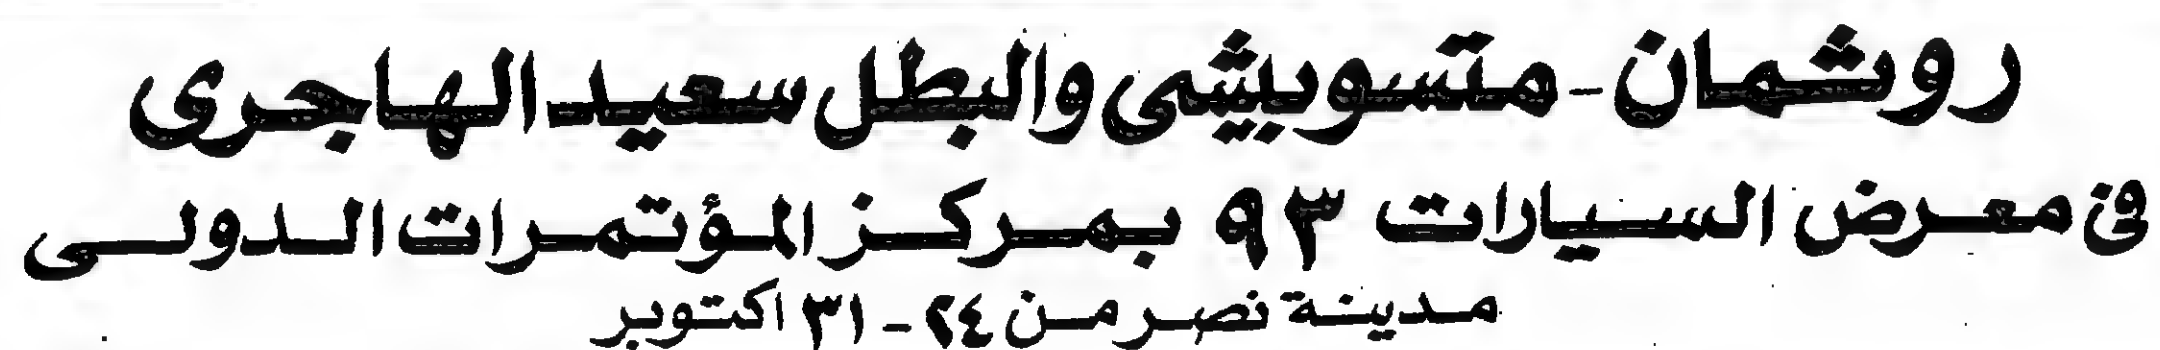 روشمان - متسوبيشى والبطل سعيد الهاجرى
فى معرض السيارات ٩٣ بمركز المؤتمرات الدولى
مدينة نصر من ٢٤ - ٣١ اكتوبر